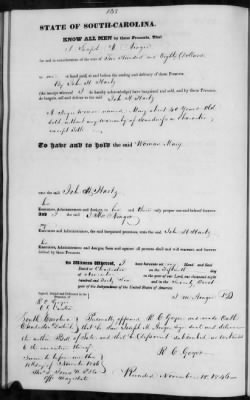 STATE OF SOUTH-CAROLINA.
KNOW ALL MEN by these Presents, That
I Joseph W.
for and in consideration of the sum of One Hundred and Eighty Dollars
to me in hand paid, at and before the sealing and delivery of these Presents
By John H Hartz
(the receipt whereof I do hereby acknowledge) have bargained and sold, and by these Presents,
do bargain, sell and deliver to the said John H. Hartz
A Negro woman named Mary about 40 years Old
Sold without any warranty of Soundness or Character,
except title
To have and to hold the said Woman Mary
unto the said John H. Hartz
his
Executors, Administrators and Assigns to his and their only proper use and behoof forever
And I the said
my
Executors, Administrators, and the bargained premises, unto the said John H Hartz
his
Executors, Administrators and Assigns from and against all persons shall and will warrant and forever
defend by these Presents.
In Witness Whereof, I have hereunto set my Hand and Seal
Dated at Charleston on the
of November in the year of our Lord one thousand eight
hundred and forty six and in the Seventy first
year of the Independence of the United States of America.
Signed, Sealed and Delivered in the
Presence of
R. C. Geyer
South Carolina
Charleston District
Personally appeared R. C. Geyer and made Oath
that he saw Joseph W. sign seal and deliver
the within Bill of Sale and that
to the execution thereof
Sworn to before me this
November 1846
R. C. Geyer
Recorded November 18. 1846